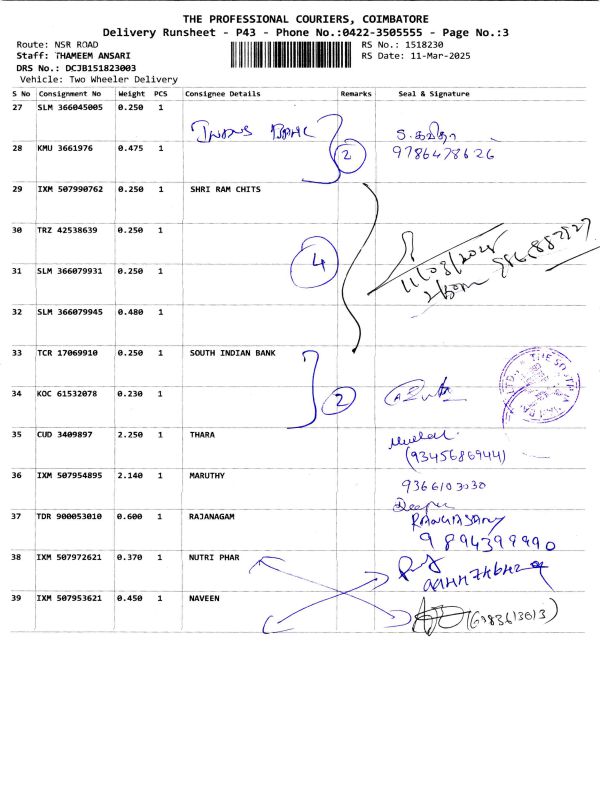 THE PROFESSIONAL COURIERS, COIMBATORE
Delivery Runsheet - P43 - Phone No.:0422-3505555 - Page No.:3
Route: NSR ROAD
RS No.: 1518230
Staff: THAMEEM ANSARI
RS Date: 11-Mar-2025
DRS No.: DCJB151823003
Vehicle: Two Wheeler Delivery
S No Consignment No Weight PCS Consignee Details Remarks Seal & Signature
27 SLM 366045005 0.250 1
2 S. கவிதா
28 KMU 3661976 0.475 1 9786478626
29 IXM 507990762 0.250 1 SHRI RAM CHITS
30 TRZ 42538639 0.250 1
4 11/03/2025
31 SLM 366079931 0.250 1
32 SLM 366079945 0.480 1
33 TCR 17069910 0.250 1 SOUTH INDIAN BANK
34 KOC 61532078 0.230 1 2
35 CUD 3409897 2.250 1 THARA
(9345686944)
36 IXM 507954895 2.140 1 MARUTHY 9366103030
37 TDR 900053010 0.600 1 RAJANAGAM
9894399990
38 IXM 507972621 0.370 1 NUTRI PHAR
39 IXM 507953621 0.450 1 NAVEEN